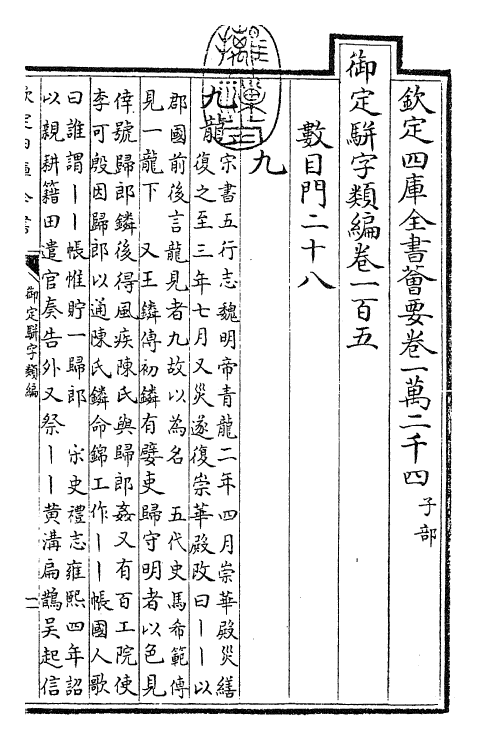 欽定四庫全書薈要卷一萬二千四 子部
御定駢字類編卷一百五
數目門二十八
九
九龍
宋書五行志魏明帝青龍二年四月崇華殿災繕
復之至三年七月又災遂復崇華殿改曰丨丨以
郡國前後言龍見者九故以為名 五代史馬希範傳
見一龍下 又王鏻傳初鏻有嬖吏歸守明者以色見
倖號歸郎鏻後得風疾陳氏與歸郎姦又有百工院使
李可殷因歸郎以通陳氏鏻命錦工作丨丨帳國人歌
曰誰謂丨丨帳惟貯一歸郎 宋史禮志雍熙四年詔
以親耕籍田遣官奏告外又祭丨丨黃溝扁鵲吳起信
御定駢字類編
一